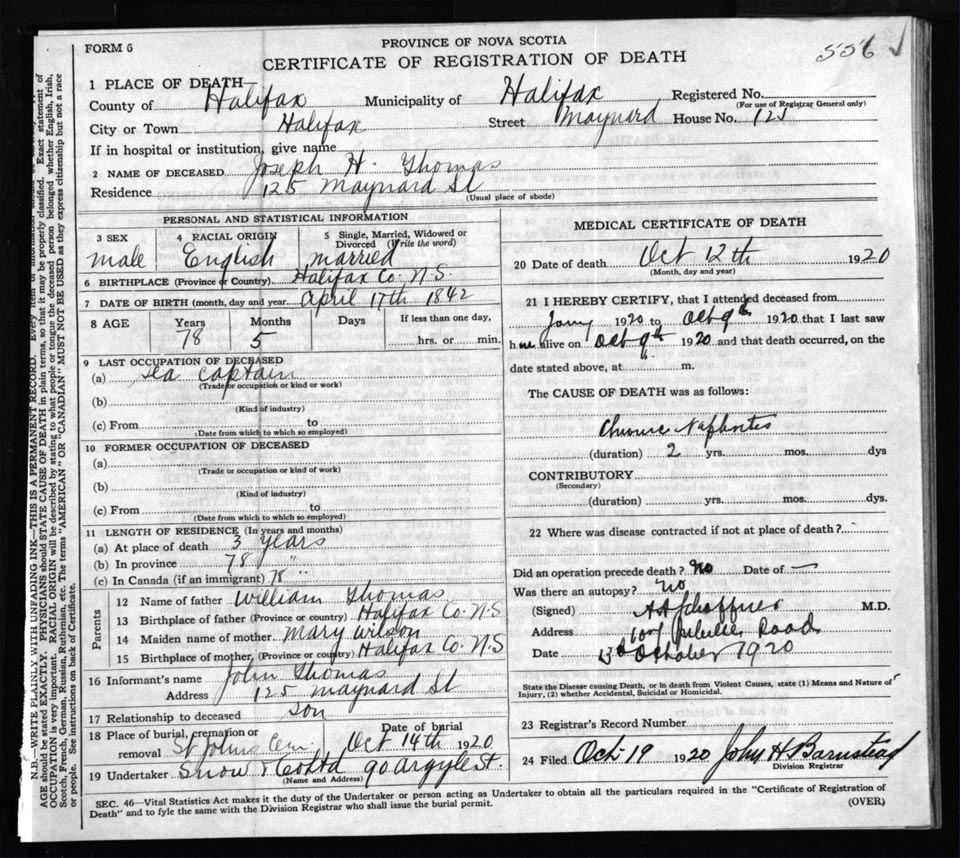 FORM 6
PROVINCE OF NOVA SCOTIA
556 ✓
CERTIFICATE OF REGISTRATION OF DEATH
1 PLACE OF DEATH—
County of Halifax Municipality of Halifax Registered No.
(For use of Registrar General only)
City or Town Halifax Street Maynard House No. 125
If in hospital or institution, give name
2 NAME OF DECEASED Joseph H. Thomas
Residence 125 Maynard St
(Usual place of abode)
PERSONAL AND STATISTICAL INFORMATION
3 SEX 4 RACIAL ORIGIN 5 Single, Married, Widowed or Divorced (Write the word)
male English married
6 BIRTHPLACE (Province or Country) Halifax Co. N.S.
7 DATE OF BIRTH (month, day and year) April 17th 1842
8 AGE Years Months Days If less than one day,
78 5 hrs. or min.
9 LAST OCCUPATION OF DECEASED
(a) sea captain
(Trade or occupation or kind or work)
(b)
(Kind of industry)
(c) From to
(Date from which to which so employed)
10 FORMER OCCUPATION OF DECEASED
(a)
(Trade or occupation or kind of work)
(b)
(Kind of industry)
(c) From to
(Date from which to which so employed)
11 LENGTH OF RESIDENCE (In years and months)
(a) At place of death 3 years
(b) In province 78 "
(c) In Canada (if an immigrant) 78 "
Parents
12 Name of father William Thomas
13 Birthplace of father (Province or country) Halifax Co. N.S
14 Maiden name of mother Mary Wilson
15 Birthplace of mother, (Province or country) Halifax Co. N.S
16 Informant's name John Thomas
Address 125 Maynard St
17 Relationship to deceased son
18 Place of burial, cremation or removal St Johns Cem. Date of burial Oct 14th 1920
19 Undertaker Snow & Co Ltd 90 Argyle St.
(Name and Address)
MEDICAL CERTIFICATE OF DEATH
20 Date of death Oct 12th 1920
(Month, day and year)
21 I HEREBY CERTIFY, that I attended deceased from
Jany 1920 to Oct 9th 1920 that I last saw
h im alive on Oct 9th 1920 and that death occurred, on the
date stated above, at m.
The CAUSE OF DEATH was as follows:
Chronic Nephritis
(duration) 2 yrs. mos. dys
CONTRIBUTORY
(Secondary)
(duration) yrs. mos. dys.
22 Where was disease contracted if not at place of death?
Did an operation precede death? No Date of —
Was there an autopsy? No
(Signed) M.D.
Address Jubilee Road
Date 13th October 1920
State the Disease causing Death, or in death from Violent Causes, state (1) Means and Nature of
Injury, (2) whether Accidental, Suicidal or Homicidal.
23 Registrar's Record Number
24 Filed Oct 19 1920 John H Barnstead
Division Registrar
SEC. 46—Vital Statistics Act makes it the duty of the Undertaker or person acting as Undertaker to obtain all the particulars required in the "Certificate of Registration of
Death" and to fyle the same with the Division Registrar who shall issue the burial permit.
(OVER)
N.B.—WRITE PLAINLY WITH UNFADING INK—THIS IS A PERMANENT RECORD. Every item of information should
AGE should be stated EXACTLY. PHYSICIANS should STATE CAUSE OF DEATH in plain terms, so that it may be properly classified. Exact statement of
OCCUPATION is very important. RACIAL ORIGIN will be described by stating to what people or tongue the deceased person belonged whether English, Irish,
Scotch, French, German, Russian, Ruthenian, etc. The terms "AMERICAN" OR "CANADIAN" MUST NOT BE USED as they express citizenship but not a race
or people. See instructions on back of Certificate.